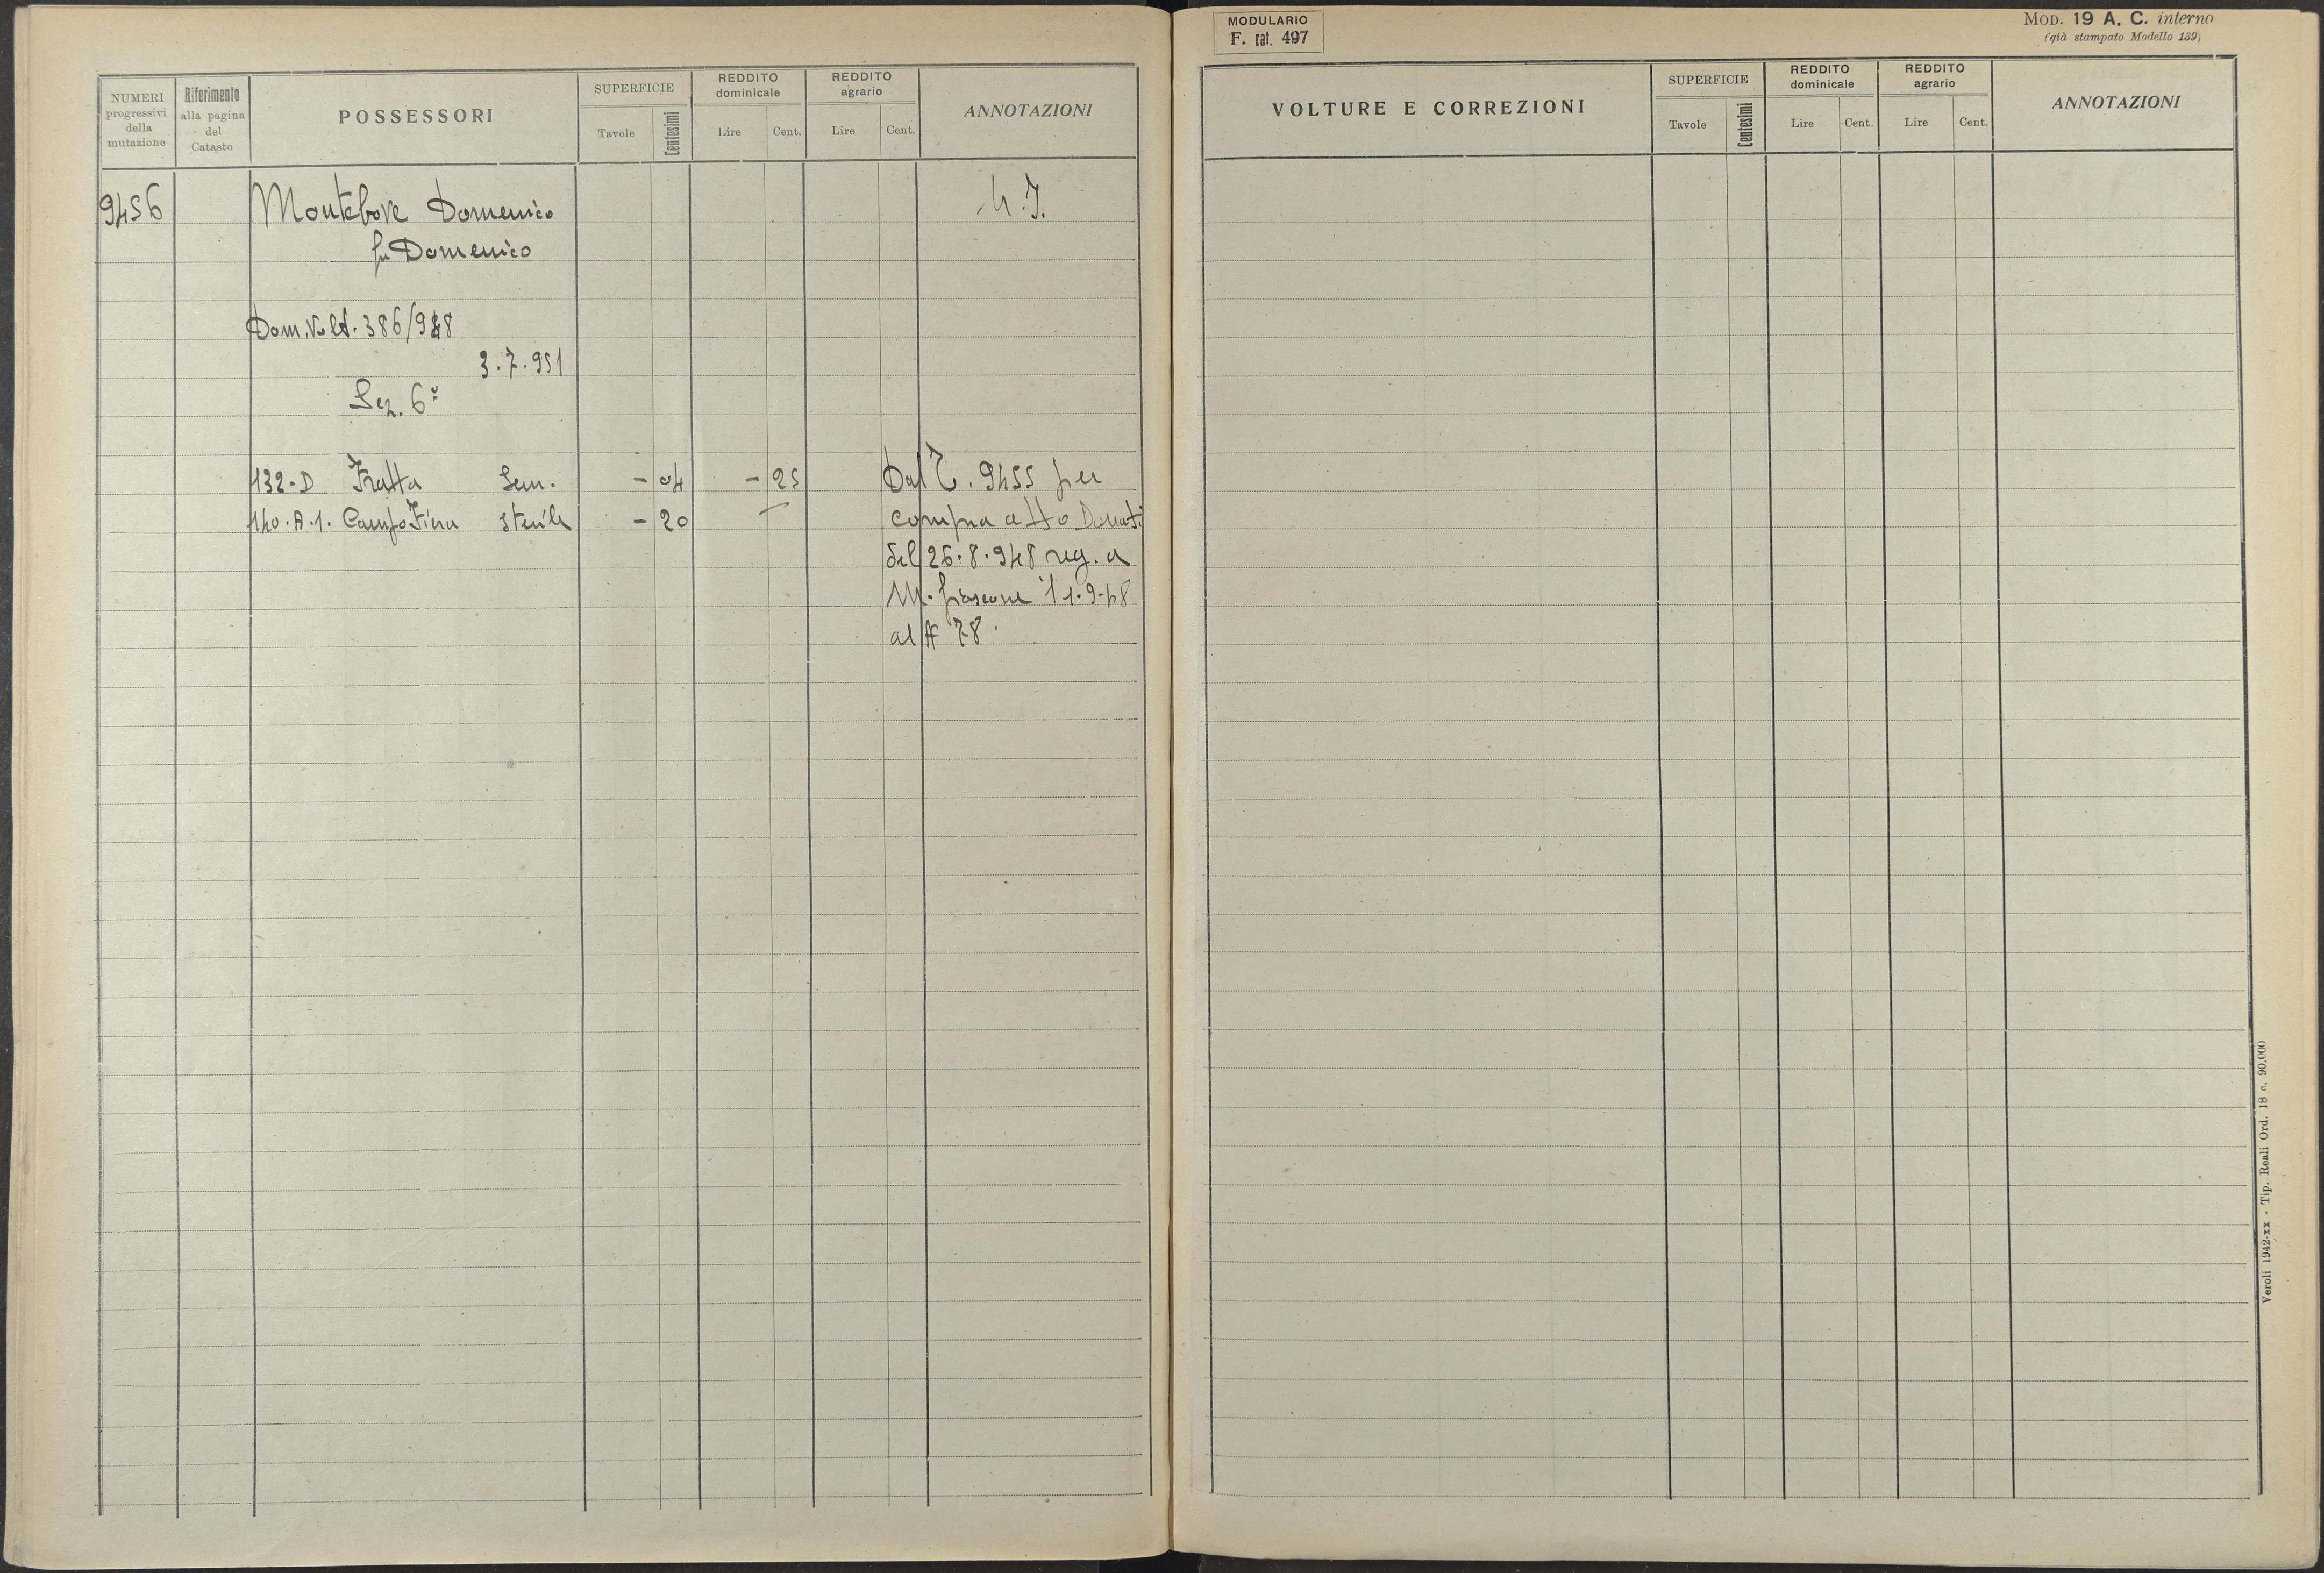 NUMERI progressivi della mutazione
Riferimento alla pagina del Catasto
POSSESSORI
SUPERFICIE
Tavole
Centesimi
REDDITO dominicale
Lire
Cent.
REDDITO agrario
Lire
Cent.
ANNOTAZIONI
9456 Montebove Domenico
fu Domenico
Dom. Volt. 386/948
3.7.951
Sez. 6ª
132.D Fratta Sem. - 04 - 25 Dal T. 9455 per
140.A.1. Campo Fiera Sterile - 20 compra atto Donati
del 26.8.948 reg. a
M. fiascone il 1.9.48
al # 78
MODULARIO
F. cat. 497
MOD. 19 A. C. interno
(già stampato Modello 139)
VOLTURE E CORREZIONI
SUPERFICIE
Tavole
Centesimi
REDDITO dominicale
Lire
Cent.
REDDITO agrario
Lire
Cent.
ANNOTAZIONI
Veroli 1942-XX - Tip. Reali Ord. 18 c. 90.000